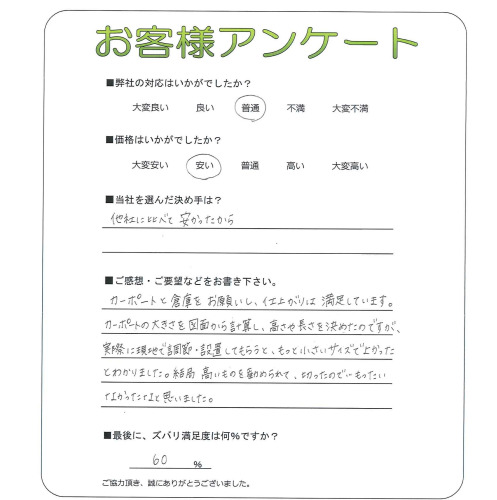 お客様アンケート
■弊社の対応はいかがでしたか?
大変良い 良い 普通 不満 大変不満
■価格はいかがでしたか?
大変安い 安い 普通 高い 大変高い
■当社を選んだ決め手は?
他社に比べて安かったから
■ご感想・ご要望などをお書き下さい。
カーポートと倉庫をお願いし、仕上がりは満足しています。
カーポートの大きさを図面から計算し、高さや長さを決めたのですが、
実際に現地で調節・設置してもらうと、もっと小さいサイズで良かった
とわかりました。結局高いものを勧められて、切ったのでもったい
なかったなと思いました。
■最後に、ズバリ満足度は何%ですか?
60 %
ご協力頂き、誠にありがとうございました。